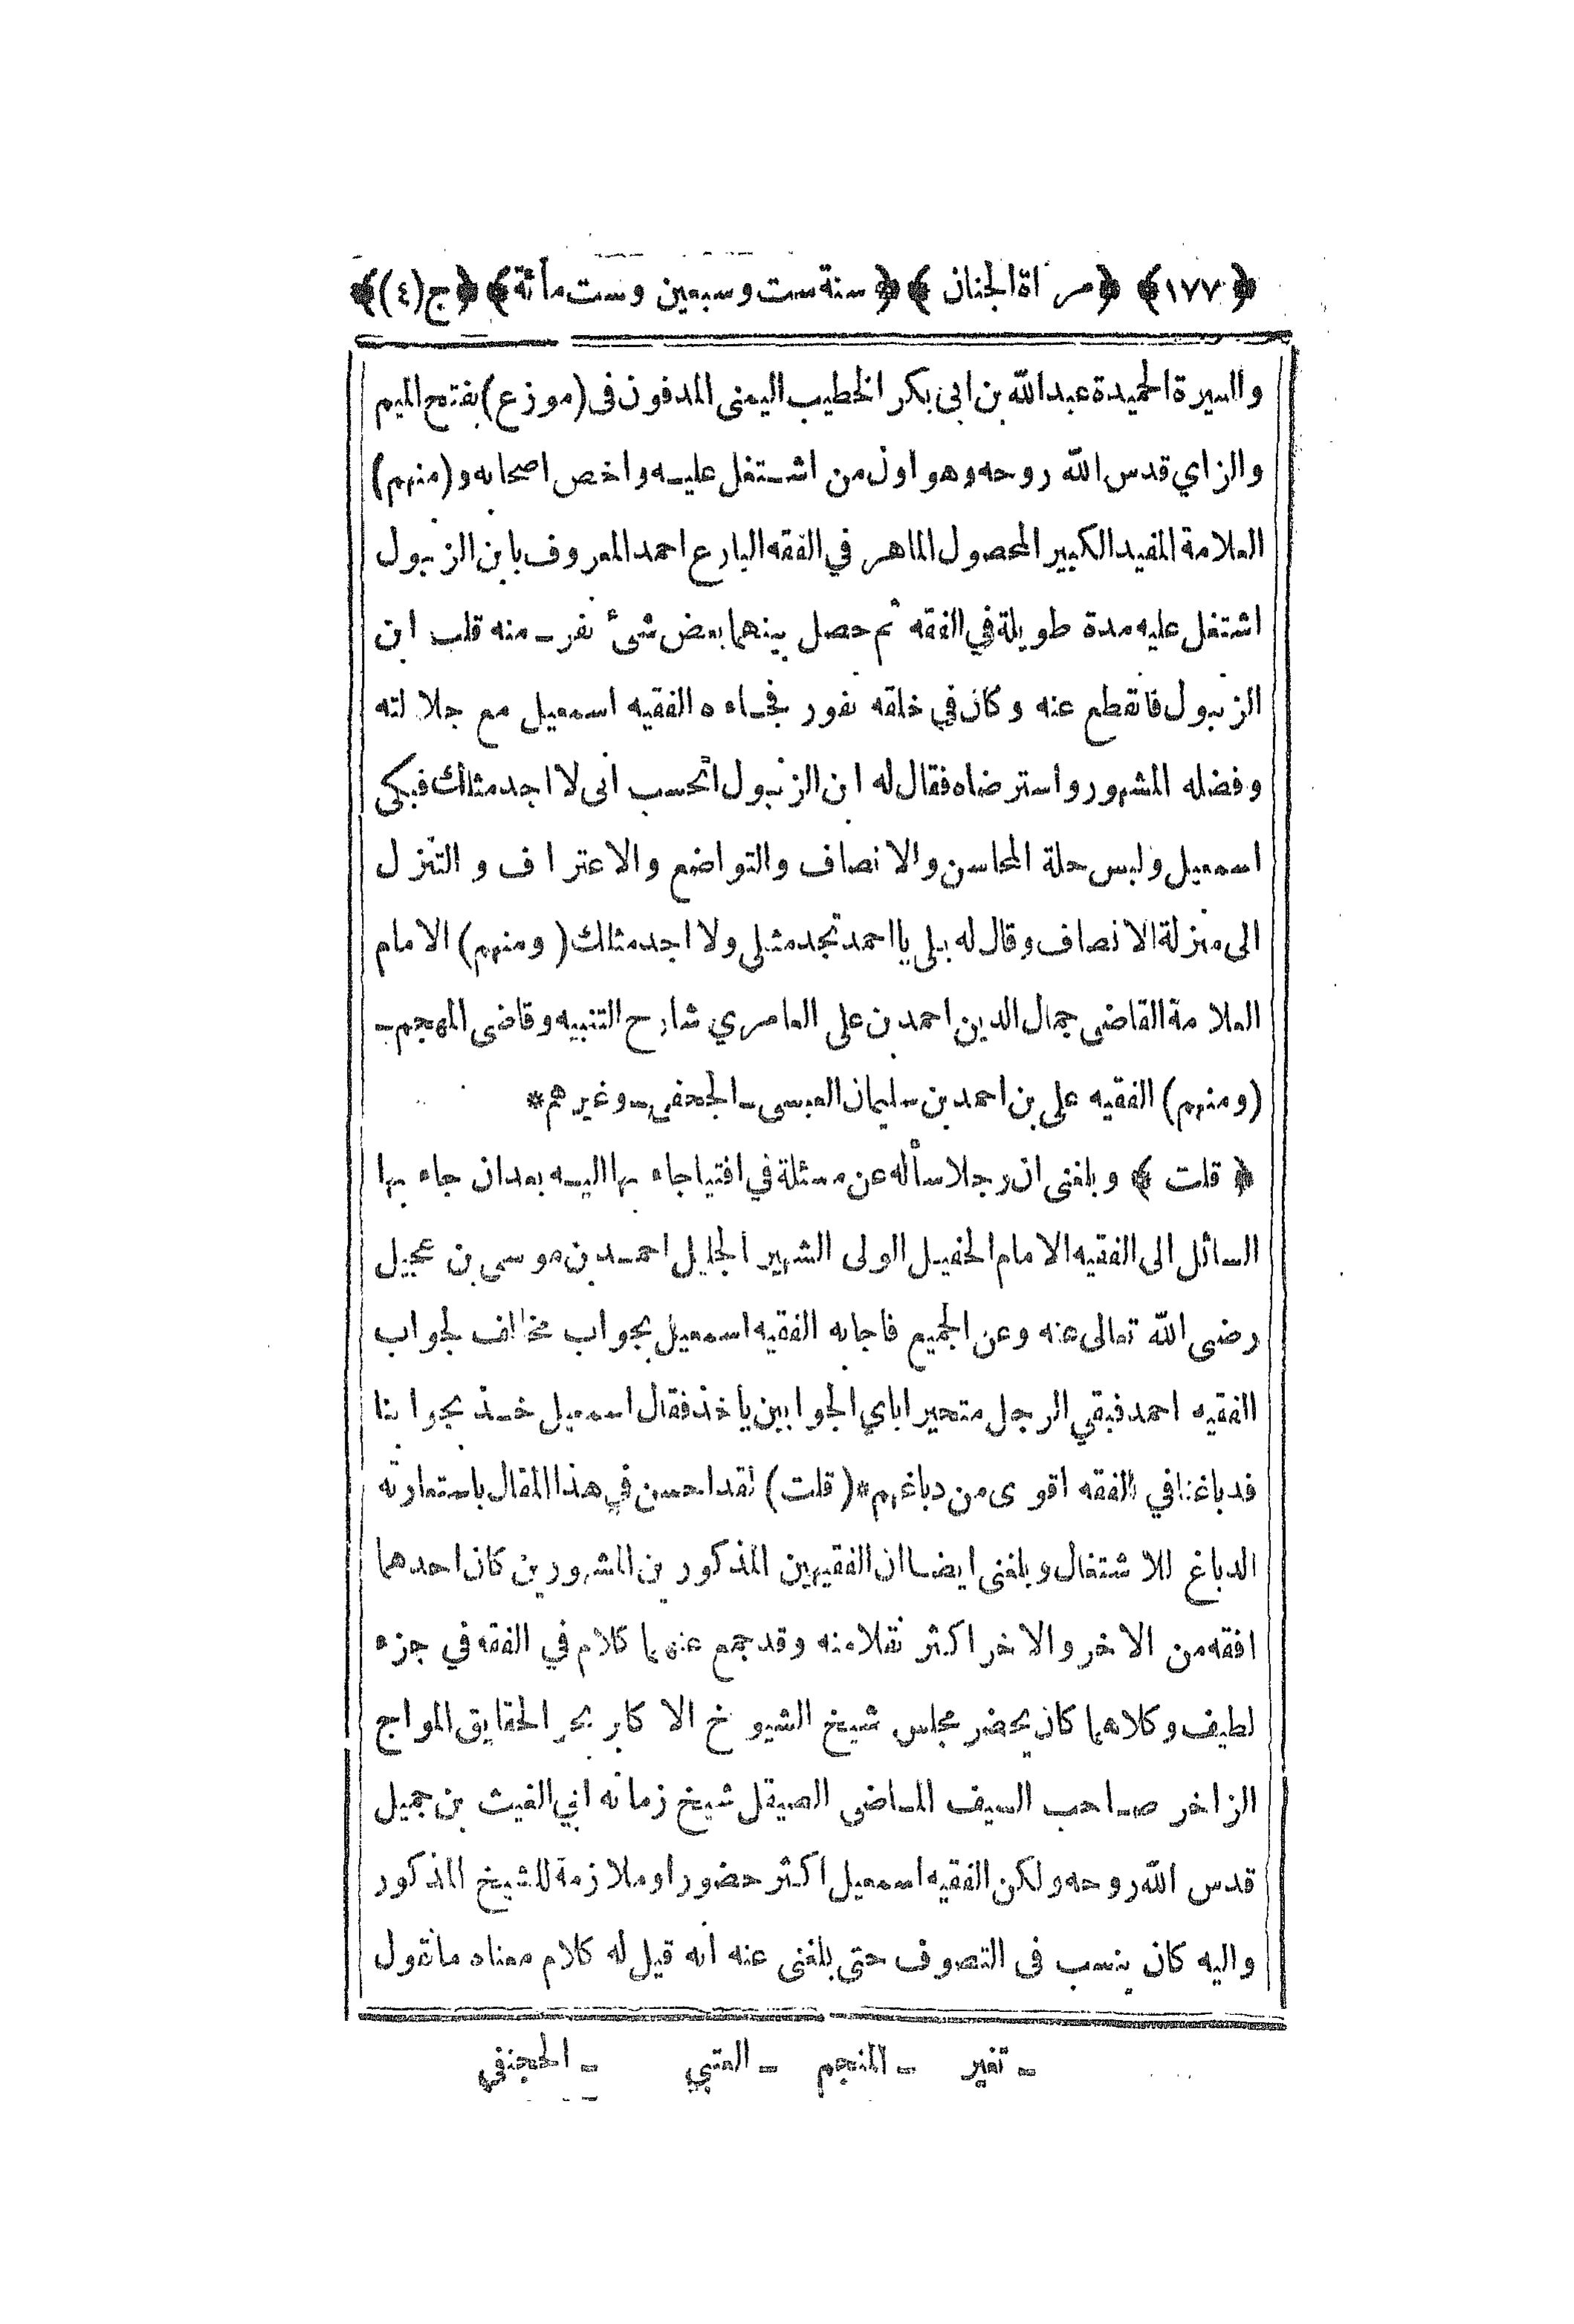 ﴿١٧٧﴾ ﴿مراة الجنان﴾ ﴿سنة ست وسبعين وست مأئة﴾ ﴿ج(٤)﴾
والسيرة الحميدة عبدالله بن ابى بكر الخطيب اليمنى المدفون فى (موزع) بفتح الميم
والزاي قدس الله روحه وهو اول من اشتغل عليه واخص اصحابه و (منهم)
العلامة المفيد الكبير المحصول الماهر في الفقه البارع احمد المعروف بابن الزنبول
اشتغل عليه مدة طويلة في الفقه ثم حصل بينهما بعض شئ نفر ـ منه قلب ابن
الزنبول فانقطع عنه وكان في خلقه نفور فجاءه الفقيه اسمعيل مع جلالته
وفضله المشهور واسترضاه فقال له ابن الزنبول اتحسب انى لا اجد مثلك فبكى
اسمعيل ولبس حلة المحاسن والانصاف والتواضع والاعتراف والتنزل
الى منزلة الانصاف وقال له بلى يا احمد تجد مثلى ولا اجد مثلك (ومنهم) الامام
العلامة القاضى جمال الدين احمد بن على العامري شارح التنبيه وقاضى المهجم ـ
(ومنهم) الفقيه على بن احمد بن سليمان العبسى ـ الجحفى ـ وغيرهم *
﴿ قلت ﴾ وبلغنى ان رجلا سأله عن مسئلة في افتيا جاء بها اليه بعد ان جاء بها
السائل الى الفقيه الامام الحفيل الولى الشهير الجليل احمد بن موسى بن عجيل
رضى الله تعالى عنه وعن الجميع فاجابه الفقيه اسمعيل بجواب مخالف لجواب
الفقيه احمد فبقي الرجل متحيرا باي الجوابين يأخذ فقال اسمعيل خذ بجوابنا
فدباغنا في الفقه اقوى من دباغهم * (قلت) لقد احسن في هذا المقال باستعارته
الدباغ للاشتغال وبلغنى ايضا ان الفقيهين المذكورين المشهورين كان احدهما
افقه من الاخر والاخر اكثر نقلا منه وقد جمع عنهما كلام في الفقه في جزء
لطيف وكلاهما كان يحضر مجلس شيخ الشيوخ الاكابر بحر الحقايق المواج
الزاخر صاحب السيف الماضى الصيقل شيخ زمانه ابي الغيث بن جميل
قدس الله روحه ولكن الفقيه اسمعيل اكثر حضورا وملازمة للشيخ المذكور
واليه كان ينسب فى التصوف حتى بلغنى عنه انه قيل له كلام معناه ما تقول
ـ تغير ـ المنجم ـ العتبي ـ الحجنفي